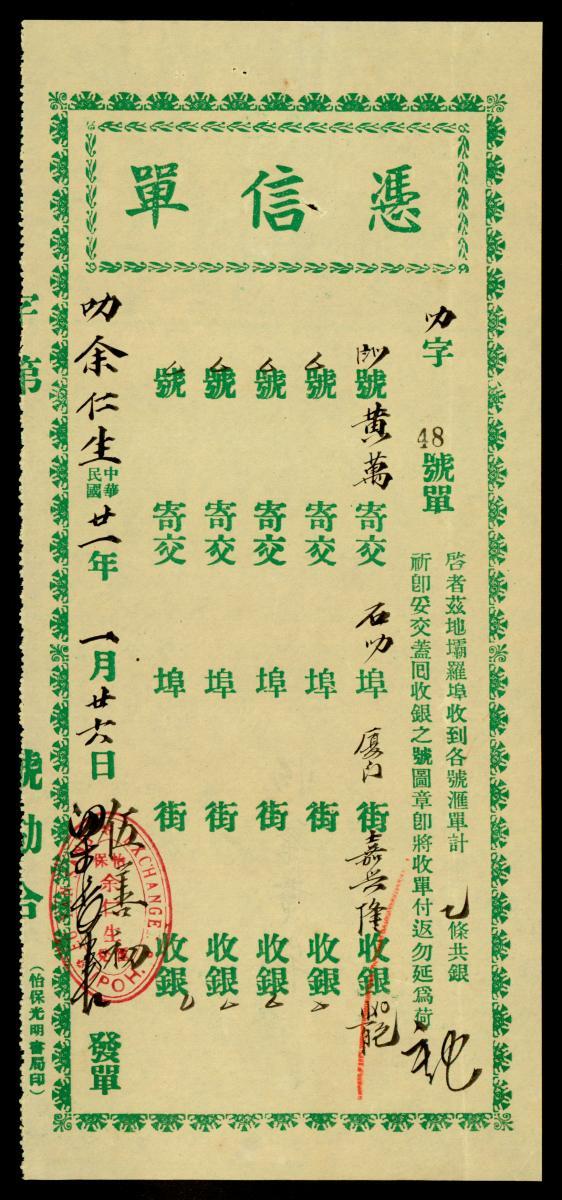 憑信單
叻字 48 號單
啓者茲地壩羅埠收到各號滙單計 條共銀
祈卽妥交蓋囘收銀之號圖章卽將收單付返勿延爲荷
號黃萬寄交石叻埠厦门街嘉興隆收銀
號 寄交 埠 街 收銀
號 寄交 埠 街 收銀
號 寄交 埠 街 收銀
號 寄交 埠 街 收銀
叻余仁生中華民國廿一年一月廿六日 發單
伍善初
EXCHANGE
怡保
余仁生
IPOH.
字第 號勘合
(怡保光明書局印)